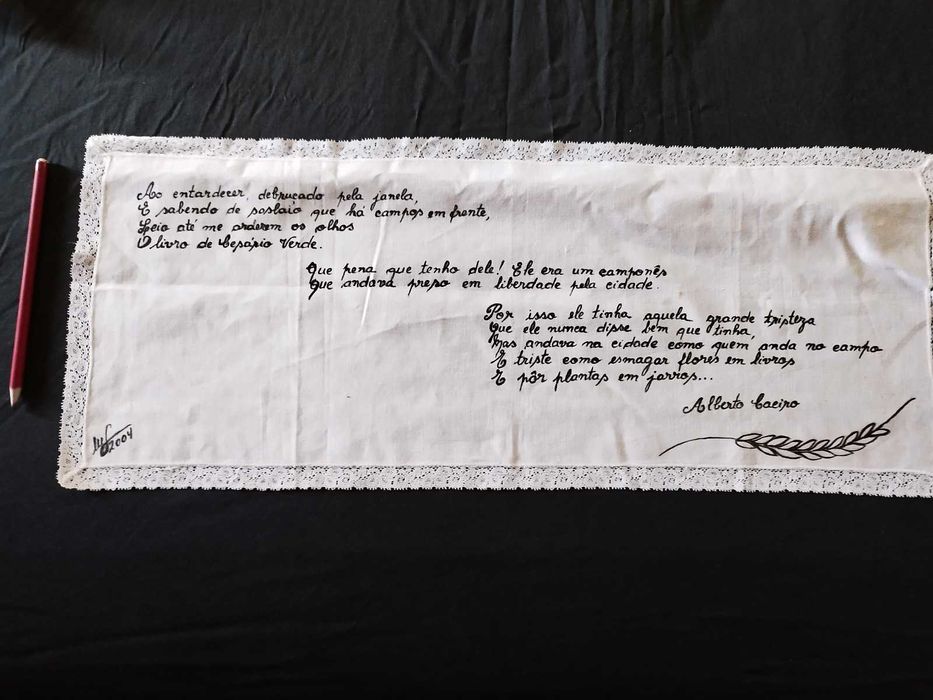 Ao entardecer, debruçado pela janela,
E sabendo de soslaio que há campos em frente,
Leio até me arderem os olhos
O livro de Cesário Verde.
Que pena que tenho dele! Ele era um camponês
Que andava preso em liberdade pela cidade.
Por isso ele tinha aquela grande tristeza
Que ele nunca disse bem que tinha,
Mas andava na cidade como quem anda no campo
E triste como esmagar flores em livros
E pôr plantas em jarros...
Alberto Caeiro
2004